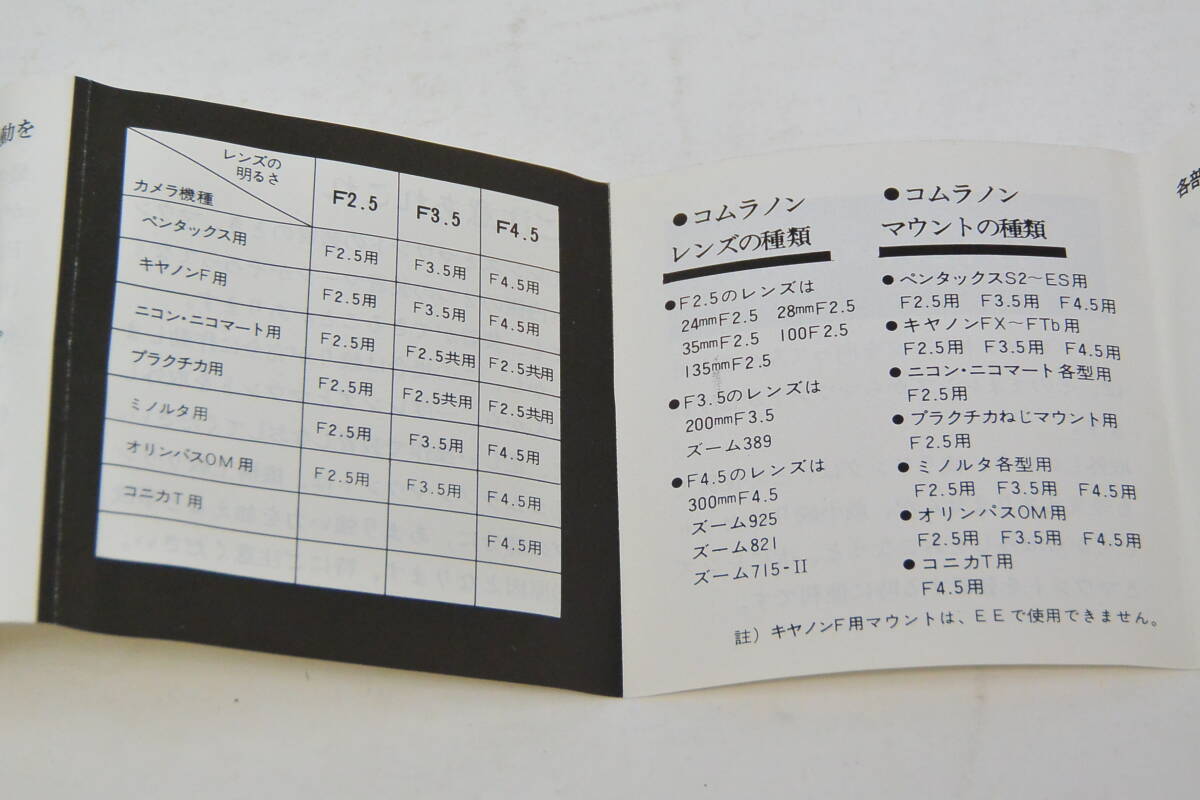 動を
レンズの
明るさ
カメラ機種
F2.5 F3.5 F4.5
ペンタックス用 F2.5用 F3.5用 F4.5用
キヤノンF用 F2.5用 F3.5用 F4.5用
ニコン・ニコマート用 F2.5用 F2.5共用 F2.5共用
プラクチカ用 F2.5用 F2.5共用 F2.5共用
ミノルタ用 F2.5用 F3.5用 F4.5用
オリンパスOM用 F2.5用 F3.5用 F4.5用
コニカT用 F4.5用
●コムラノン
レンズの種類
●F2.5のレンズは
24mmF2.5 28mmF2.5
35mmF2.5 100F2.5
135mmF2.5
●F3.5のレンズは
200mmF3.5
ズーム389
●F4.5のレンズは
300mmF4.5
ズーム925
ズーム821
ズーム715-II
●コムラノン
マウントの種類
●ペンタックスS2〜ES用
F2.5用 F3.5用 F4.5用
●キヤノンFX〜FTb用
F2.5用 F3.5用 F4.5用
●ニコン・ニコマート各型用
F2.5用
●プラクチカねじマウント用
F2.5用
●ミノルタ各型用
F2.5用 F3.5用 F4.5用
●オリンパスOM用
F2.5用 F3.5用 F4.5用
●コニカT用
F4.5用
註）キヤノンF用マウントは、EEで使用できません。
各部